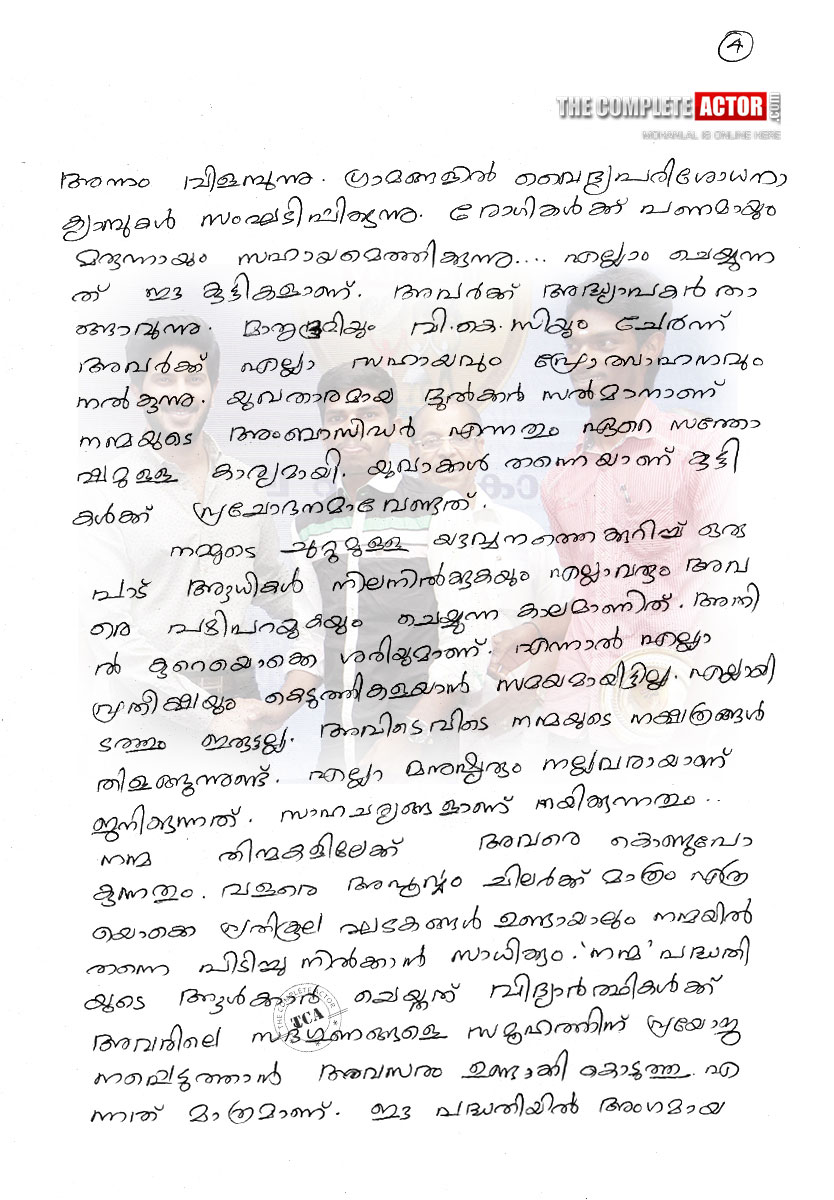 4
THE COMPLETE ACTOR.com
MOHANLAL IS ONLINE HERE
അന്നം വിളമ്പുന്നു. ഗ്രാമങ്ങളിൽ വൈദ്യപരിശോധനാ
ക്യാമ്പുകൾ സംഘടിപ്പിക്കുന്നു. രോഗികൾക്ക് പണമായും
മരുന്നായും സഹായമെത്തിക്കുന്നു.... എല്ലാം ചെയ്യുന്ന
ത് ഈ കുട്ടികളാണ്. അവർക്ക് അദ്ധ്യാപകൻ താ
ങ്ങാവുന്നു. മാതൃഭൂമിയും വി.കെ.സിയും ചേർന്ന്
അവർക്ക് എല്ലാ സഹായവും പ്രോത്സാഹനവും
നൽകുന്നു. യുവതാരമായ ദുൽക്കർ സൽമാനാണ്
നന്മയുടെ അംബാസിഡർ എന്നതും ഏറെ സന്തോ
ഷമുള്ള കാര്യമായി. യുവാക്കൾ തന്നെയാണ് കുട്ടി
കൾക്ക് പ്രചോദനമാവേണ്ടത്.
നമ്മുടെ ചുറ്റുമുള്ള യൗവ്വനത്തെക്കുറിച്ച് ഒരു
പാട് ആധികൾ നിലനിൽക്കുകയും എല്ലാവരും അവ
രെ പഴിപറയുകയും ചെയ്യുന്ന കാലമാണിത്. അതി
ൽ കുറെയൊക്കെ ശരിയുമാണ്. എന്നാൽ എല്ലാ
പ്രതീക്ഷയും കെടുത്തികളയാൻ സമയമായിട്ടില്ല. എല്ലായി
ടത്തും ഇരുട്ടല്ല. അവിടെവിടെ നന്മയുടെ നക്ഷത്രങ്ങൾ
തിളങ്ങുന്നുണ്ട്. എല്ലാ മനുഷ്യരും നല്ലവരായാണ്
ജനിക്കുന്നത്. സാഹചര്യങ്ങളാണ് നയിക്കുന്നതും..
നന്മ തിന്മകളിലേക്ക് അവരെ കൊണ്ടുപോ
കുന്നതും. വളരെ അപൂർവ്വം ചിലർക്ക് മാത്രം എത്ര
യൊക്കെ പ്രതികൂല ഘടകങ്ങൾ ഉണ്ടായാലും നന്മയിൽ
തന്നെ പിടിച്ചു നിൽക്കാൻ സാധിക്കും. 'നന്മ' പദ്ധതി
യുടെ ആൾക്കാർ ചെയ്തത് വിദ്യാർത്ഥികൾക്ക്
അവരിലെ സദ്ഗുണങ്ങളെ സമൂഹത്തിന് പ്രയോജ
നപ്പെടുത്താൻ അവസരം ഉണ്ടാക്കി കൊടുത്തു. എ
ന്നത് മാത്രമാണ്. ഈ പദ്ധതിയിൽ അംഗമായ
THE COMPLETE ACTOR
TCA